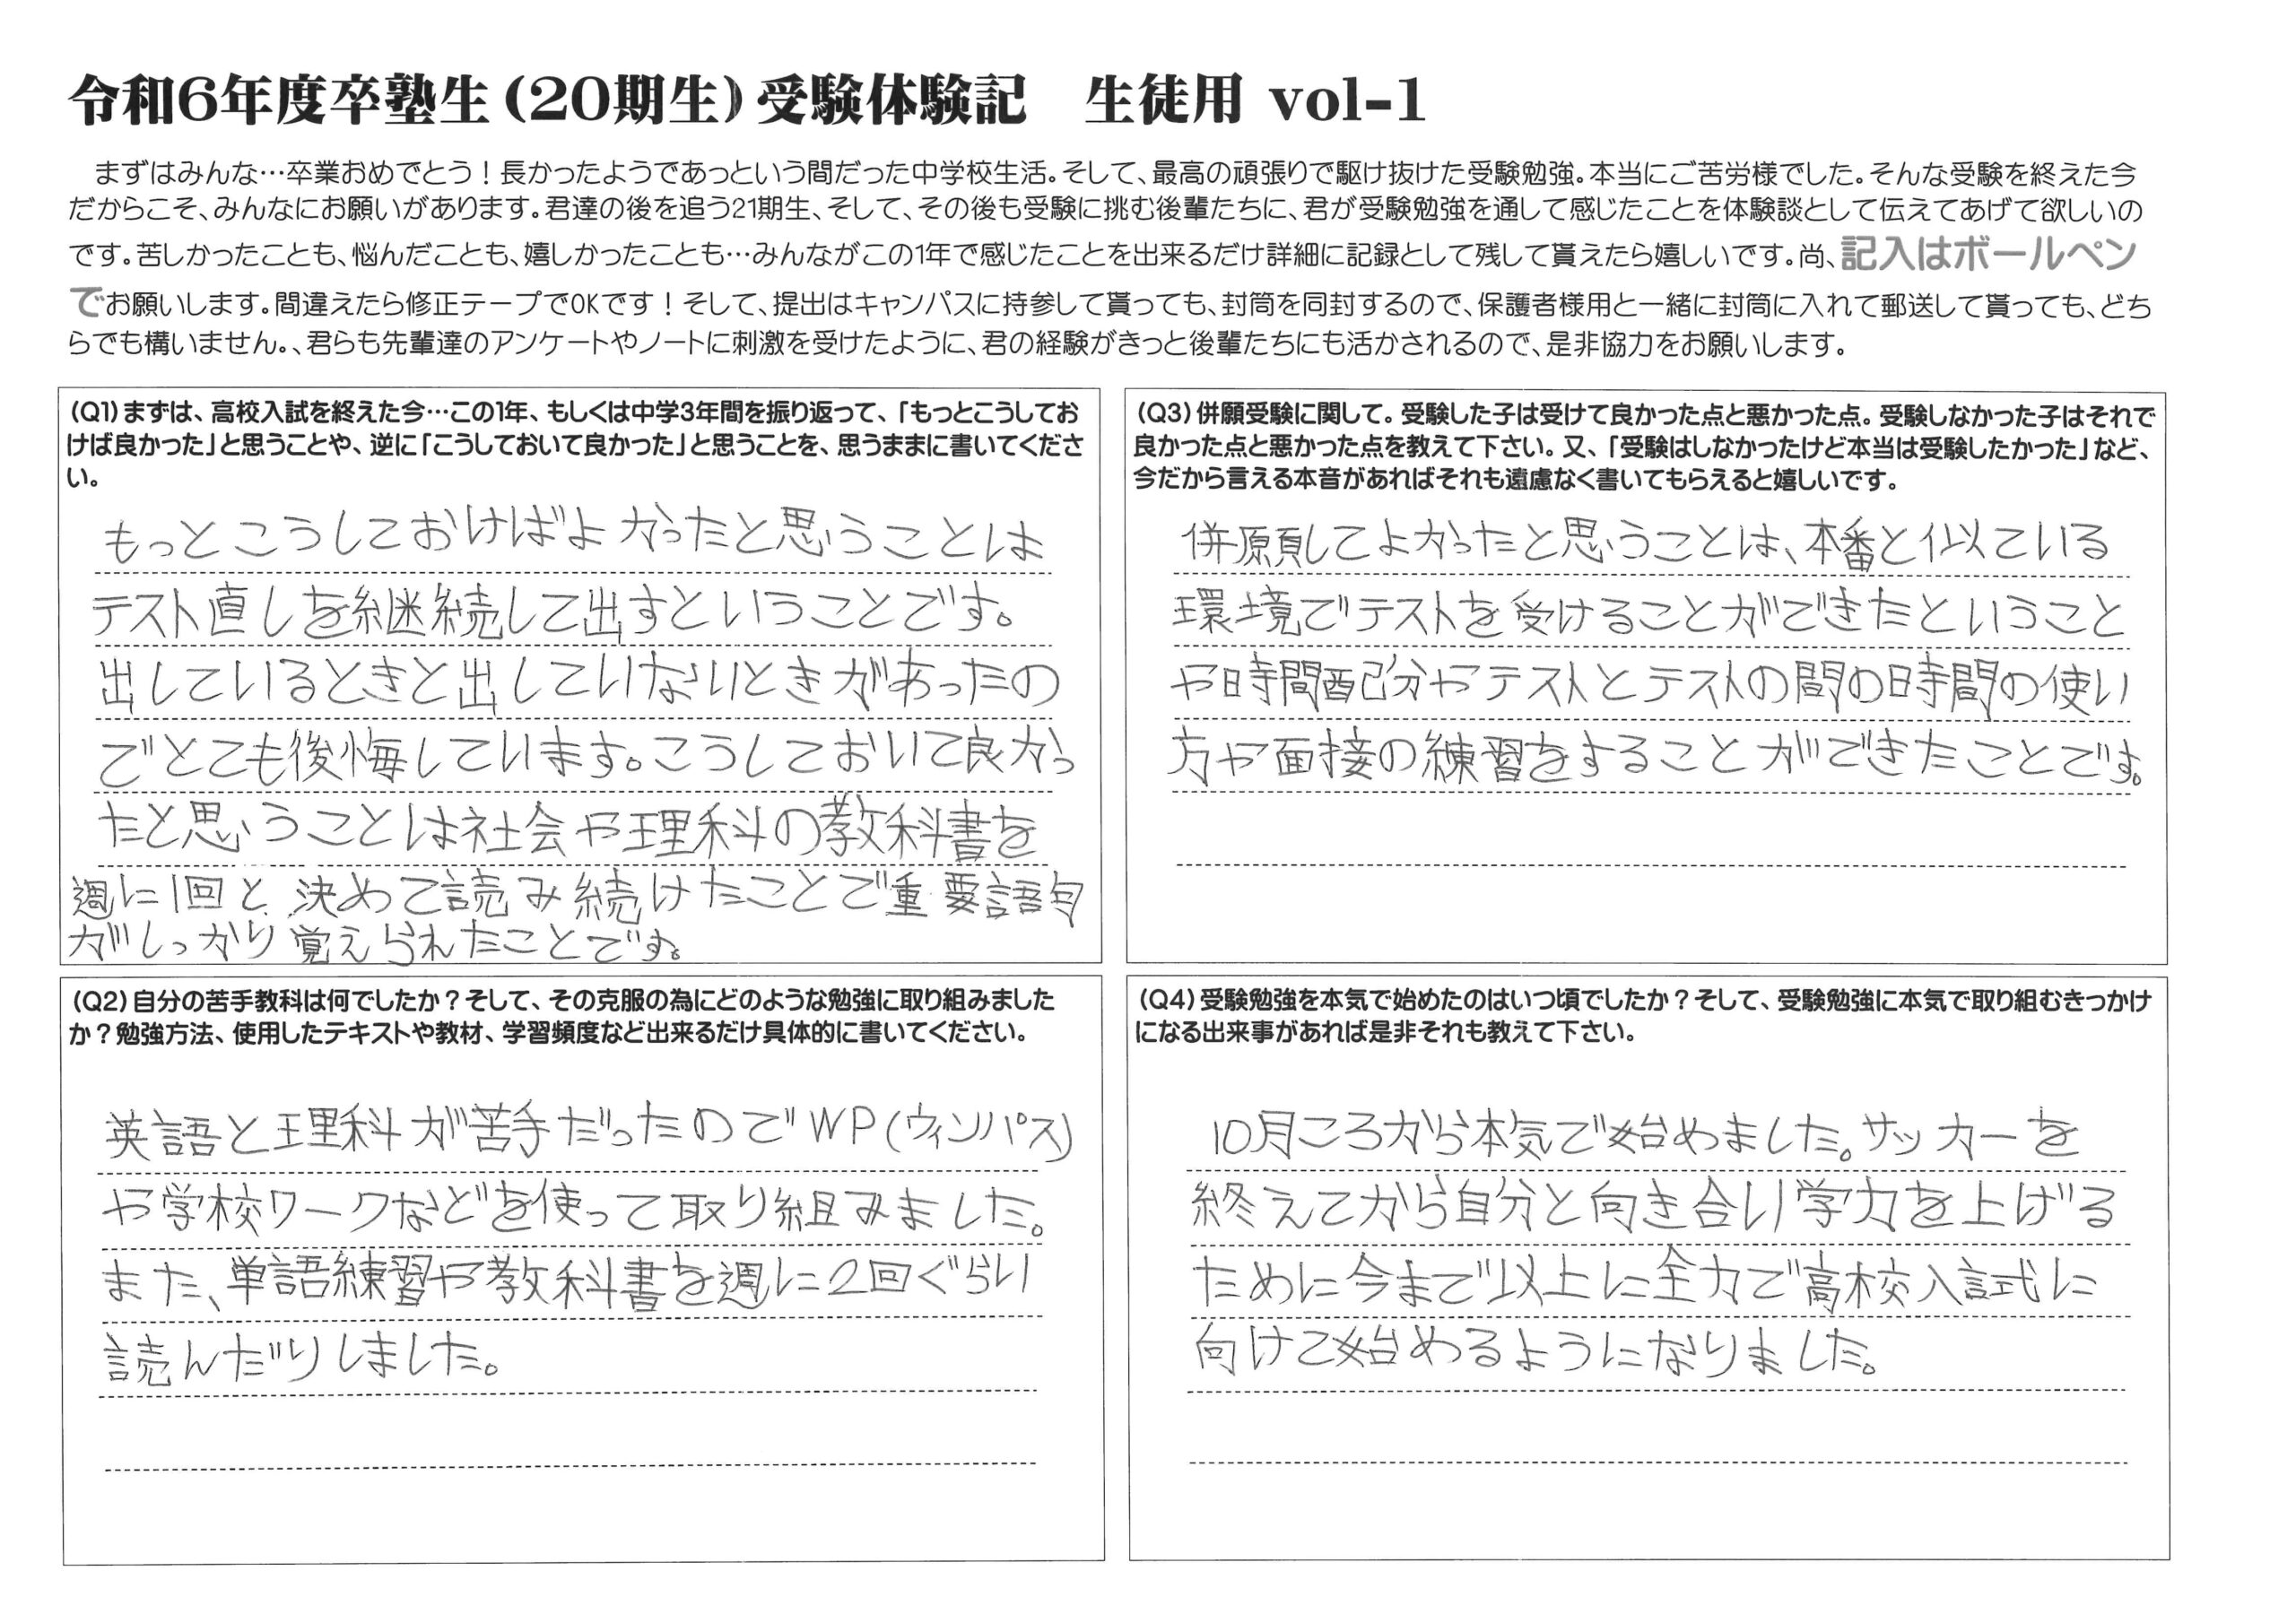 令和6年度卒塾生(20期生)受験体験記　生徒用 vol-1
まずはみんな…卒業おめでとう！長かったようであっという間だった中学校生活。そして、最高の頑張りで駆け抜けた受験勉強。本当にご苦労様でした。そんな受験を終えた今
だからこそ、みんなにお願いがあります。君達の後を追う21期生、そして、その後も受験に挑む後輩たちに、君が受験勉強を通して感じたことを体験談として伝えてあげて欲しいの
です。苦しかったことも、悩んだことも、嬉しかったことも…みんながこの1年で感じたことを出来るだけ詳細に記録として残して貰えたら嬉しいです。尚、記入はボールペン
でお願いします。間違えたら修正テープでOKです！そして、提出はキャンパスに持参して貰っても、封筒を同封するので、保護者様用と一緒に封筒に入れて郵送して貰っても、どち
らでも構いません。、君らも先輩達のアンケートやノートに刺激を受けたように、君の経験がきっと後輩たちにも活かされるので、是非協力をお願いします。
(Q1)まずは、高校入試を終えた今…この1年、もしくは中学3年間を振り返って、「もっとこうしてお
けば良かった」と思うことや、逆に「こうしておいて良かった」と思うことを、思うままに書いてくださ
い。
もっとこうしておけばよかったと思うことは
テスト直しを継続して出すということです。
出しているときと出していないときがあったの
でとても後悔しています。こうしておいて良かっ
たと思うことは社会や理科の教科書を
週に1回と決めて読み続けたことで重要語句
がしっかり覚えられたことです。
(Q2)自分の苦手教科は何でしたか？そして、その克服の為にどのような勉強に取り組みました
か？勉強方法、使用したテキストや教材、学習頻度など出来るだけ具体的に書いてください。
英語と理科が苦手だったのでWP(ウィンパス)
や学校ワークなどを使って取り組みました。
また、単語練習や教科書を週に2回ぐらい
読んだりしました。
(Q3)併願受験に関して。受験した子は受けて良かった点と悪かった点。受験しなかった子はそれで
良かった点と悪かった点を教えて下さい。又、「受験はしなかったけど本当は受験したかった」など、
今だから言える本音があればそれも遠慮なく書いてもらえると嬉しいです。
併願してよかったと思うことは、本番と似ている
環境でテストを受けることができたということ
や時間配分やテストとテストの間の時間の使い
方や面接の練習をすることができたことです。
(Q4)受験勉強を本気で始めたのはいつ頃でしたか？そして、受験勉強に本気で取り組むきっかけ
になる出来事があれば是非それも教えて下さい。
10月ころから本気で始めました。サッカーを
終えてから自分と向き合い学力を上げる
ために今まで以上に全力で高校入試に
向けて始めるようになりました。